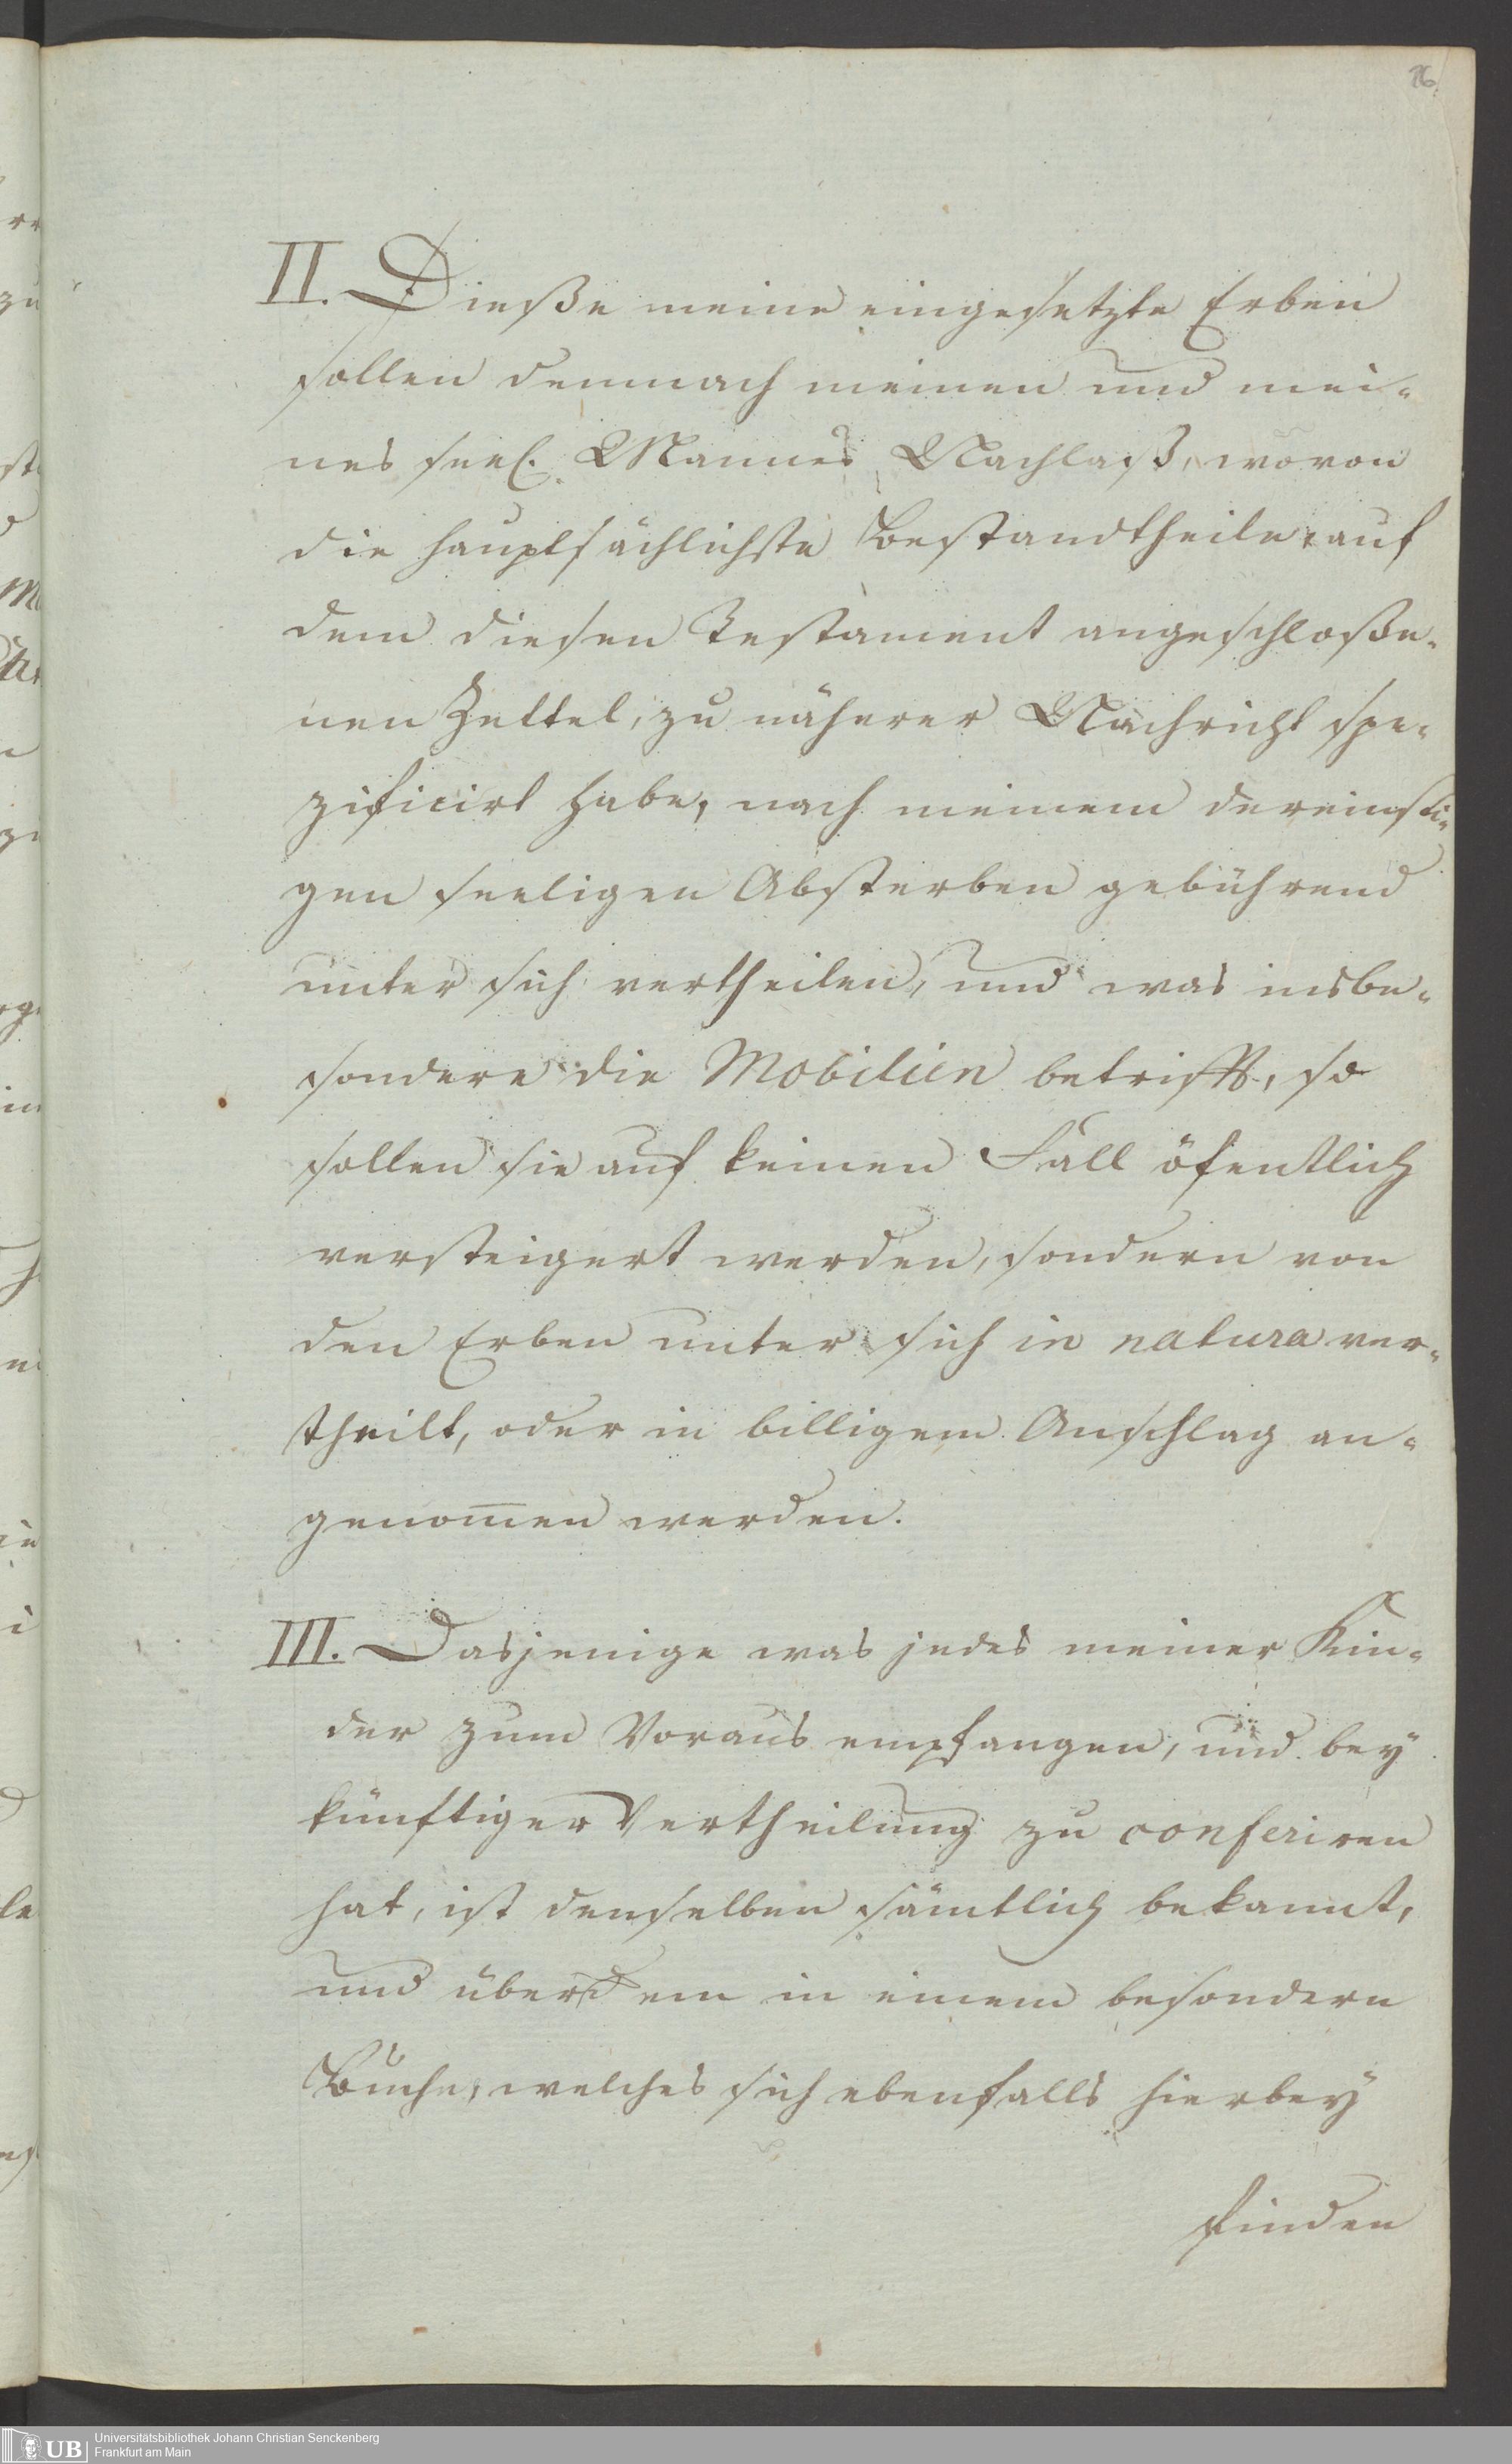 26.
II. Dieße meine eingesetzte Erben
sollen demnach meinen und mei-
nes seel. Mannes Nachlaß, wovon
die hauptsächlichste Bestandtheile auf
dem diesen Testament angeschloße-
nen Zettel, zu näherer Nachricht spe-
zificirt habe, nach meinem dereinsti-
gen seeligen Absterben gebührend
unter sich vertheilen, und was insbe-
sondere die Mobilien betrifft, so
sollen sie auf keinen Fall öfentlich
versteigert werden, sondern von
den Erben unter sich in natura ver-
theilt, oder in billigem Anschlag an-
genom̅en werden.
III. Dasjenige was jedes meiner Kin-
der zum Voraus empfangen, und bey
künftiger Vertheilung zu conferiren
hat, ist denselben sämtlich bekannt,
und überdem in einem besondern
Buche, welches sich ebenfalls hierbey
finden
UB
Universitätsbibliothek Johann Christian Senckenberg
Frankfurt am Main